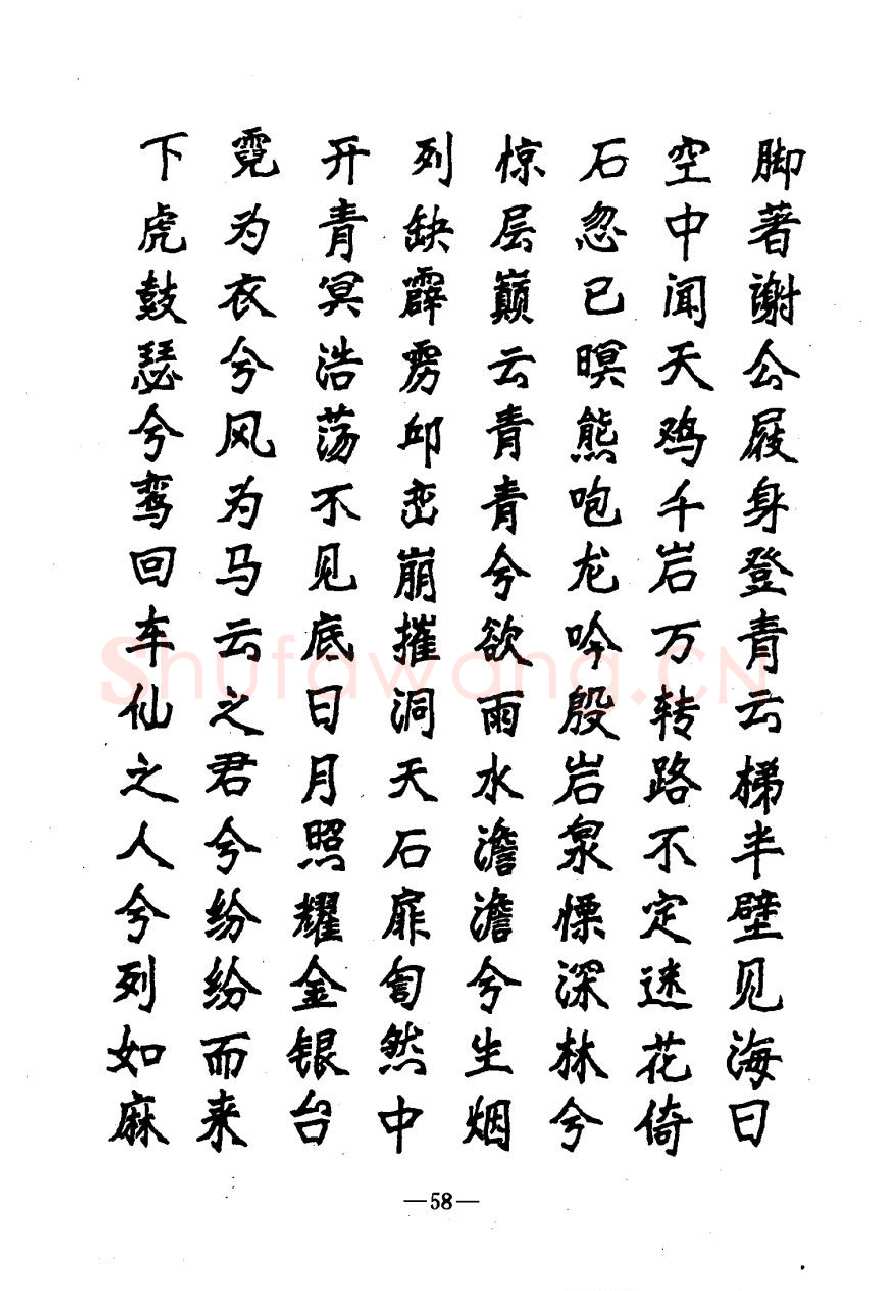 脚著谢公屐身登青云梯半壁见海日
空中闻天鸡千岩万转路不定迷花倚
石忽已暝熊咆龙吟殷岩泉慄深林兮
惊层巅云青青兮欲雨水澹澹兮生烟
列缺霹雳邱峦崩摧洞天石扉訇然中
开青冥浩荡不见底日月照耀金银台
霓为衣兮风为马云之君兮纷纷而来
下虎鼓瑟兮鸾回车仙之人兮列如麻
Shufawang.CN
—58—